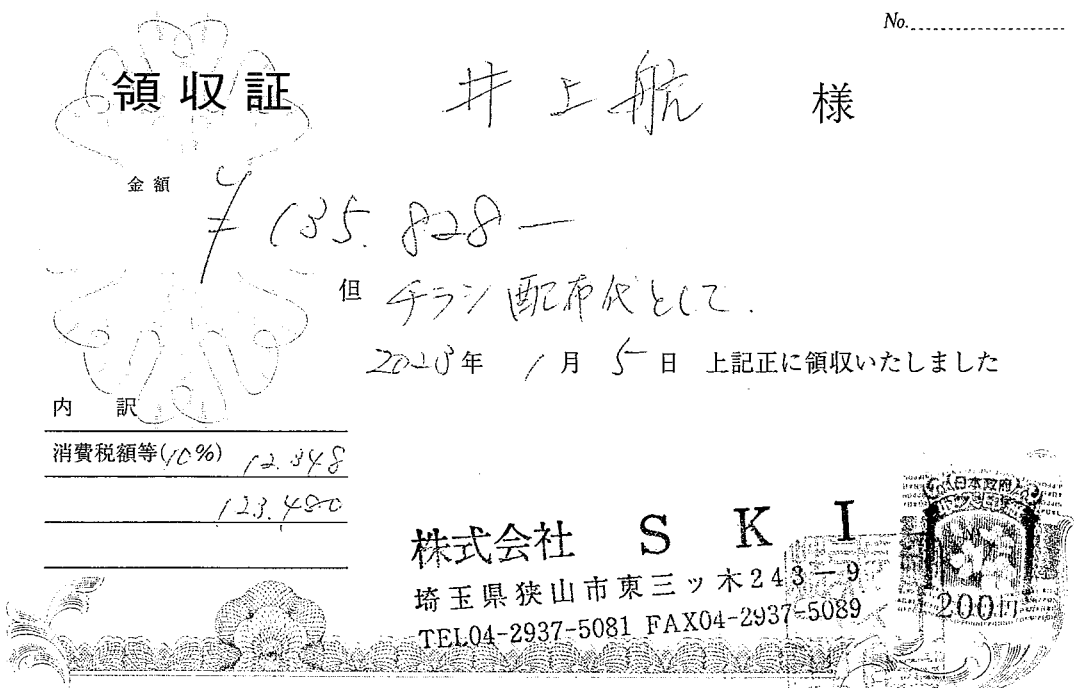 No.
領収証 井上航 様
金額 ¥135.828-
但 チラシ配布代として.
2023年 1月 5日 上記正に領収いたしました
内訳
消費税額等(10%) 12.348
123.480
株式会社 SKI
埼玉県狭山市東三ッ木243-9
TEL04-2937-5081 FAX04-2937-5089
日本政府
200円